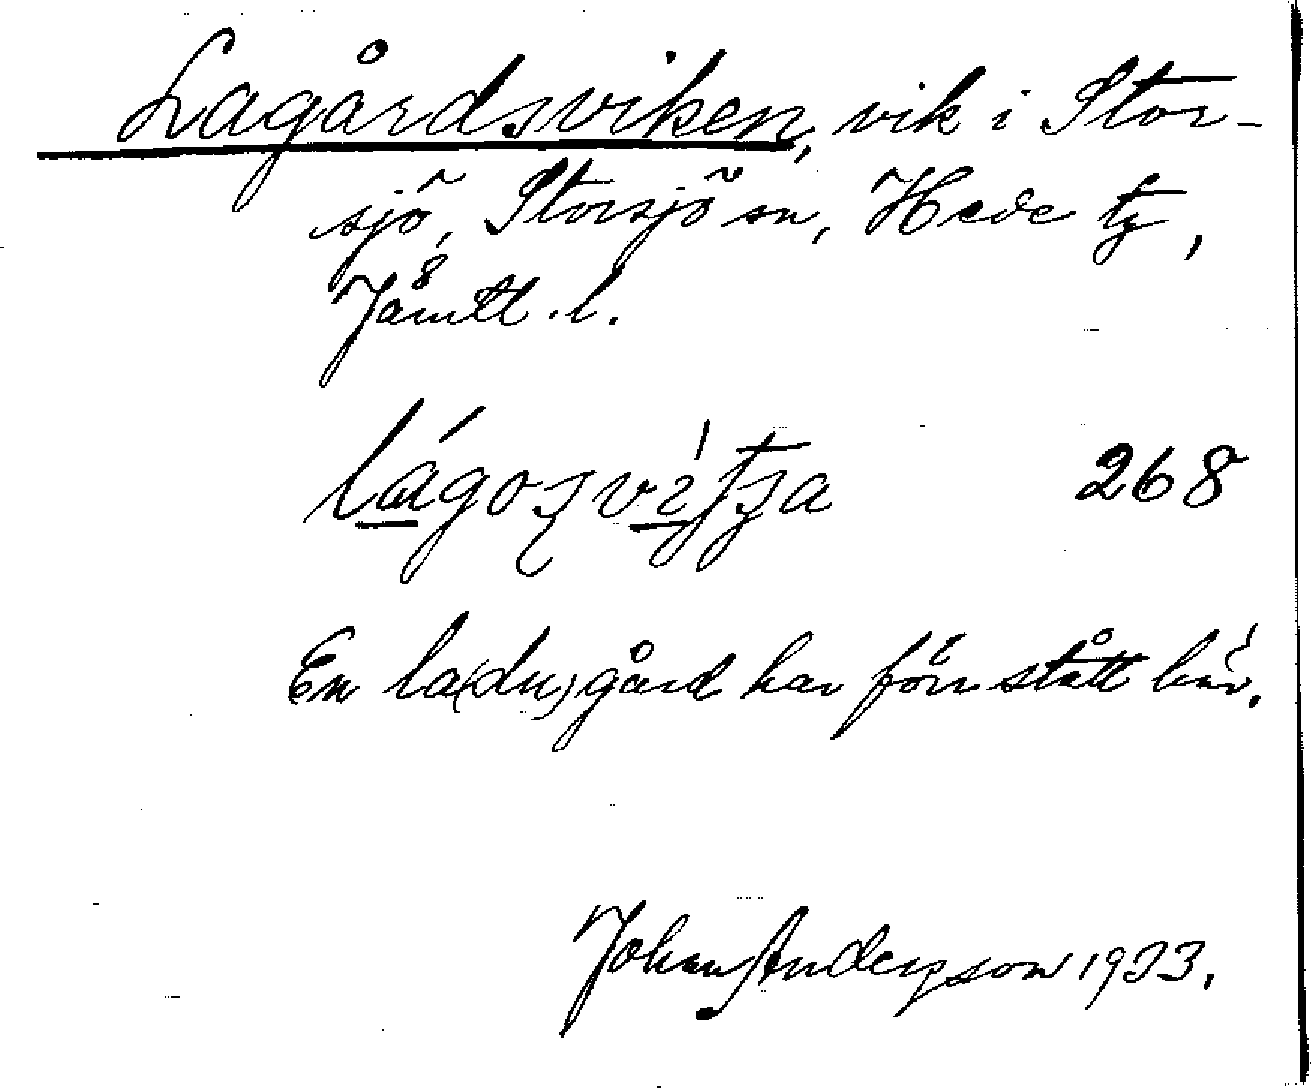 Lagårdsviken, vik i Stor-
sjö, Storsjö sn, Hede tg,
Jämtl. l.
268
En la(du)gård har förr stått här.
Johan Anderson 1933.